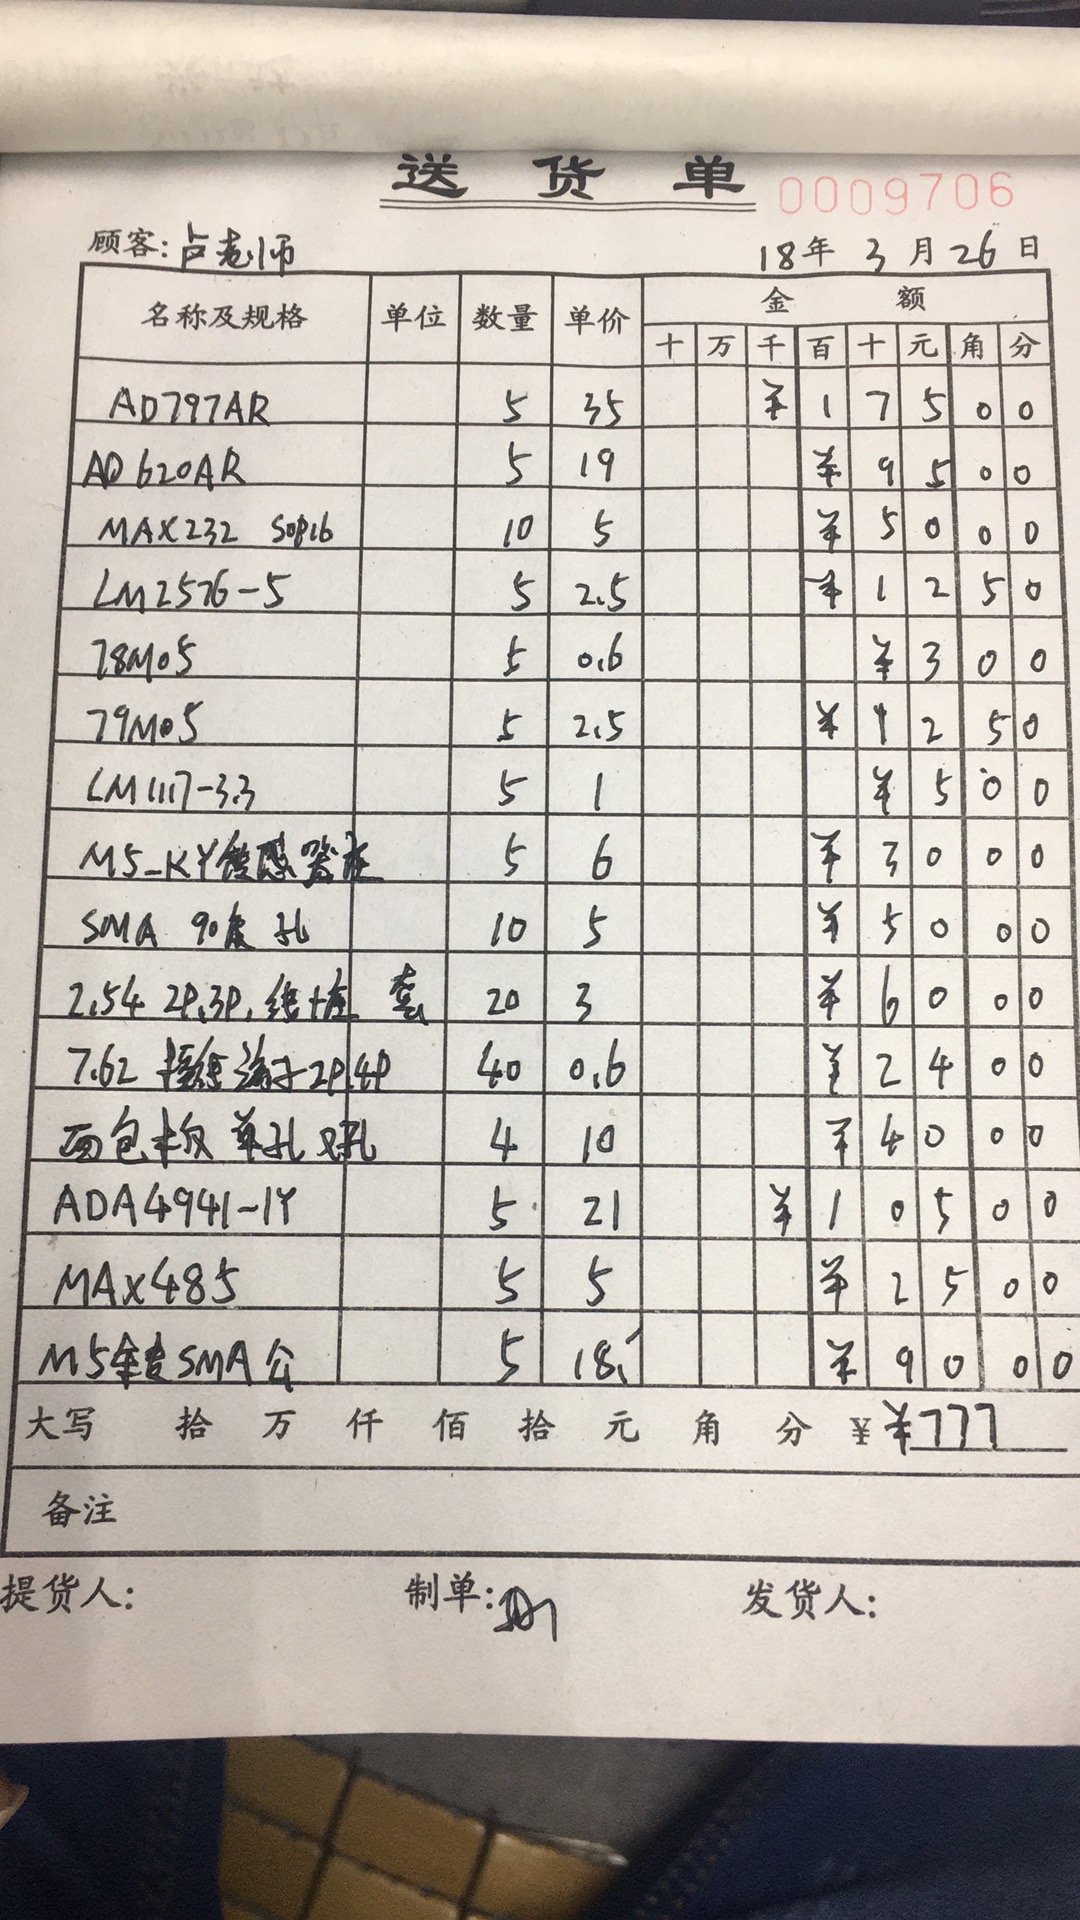 送货单 0009706
顾客:卢老师 18年 3月 26日
名称及规格 单位 数量 单价 金额
十 万 千 百 十 元 角 分
AD797AR 5 35 ¥ 1 7 5 0 0
AD620AR 5 19 ¥ 9 5 0 0
MAX232 SOP16 10 5 ¥ 5 0 0 0
LM2576-5 5 2.5 ¥ 1 2 5 0
78M05 5 0.6 ¥ 3 0 0
79M05 5 2.5 ¥ 1 2 5 0
LM1117-3.3 5 1 ¥ 5 0 0
M5-KY传感器座 5 6 ¥ 3 0 0 0
SMA 90度 孔 10 5 ¥ 5 0 0 0
2.54 2P.3P. 线+座 套 20 3 ¥ 6 0 0 0
7.62 接线端子2P.4P 40 0.6 ¥ 2 4 0 0
面包板 单孔 双孔 4 10 ¥ 4 0 0 0
ADA4941-1Y 5 21 ¥ 1 0 5 0 0
MAX485 5 5 ¥ 2 5 0 0
M5 SMA公 5 18 ¥ 9 0 0 0
大写 拾 万 仟 佰 拾 元 角 分 ¥ ¥777
备注
提货人: 制单: 发货人: